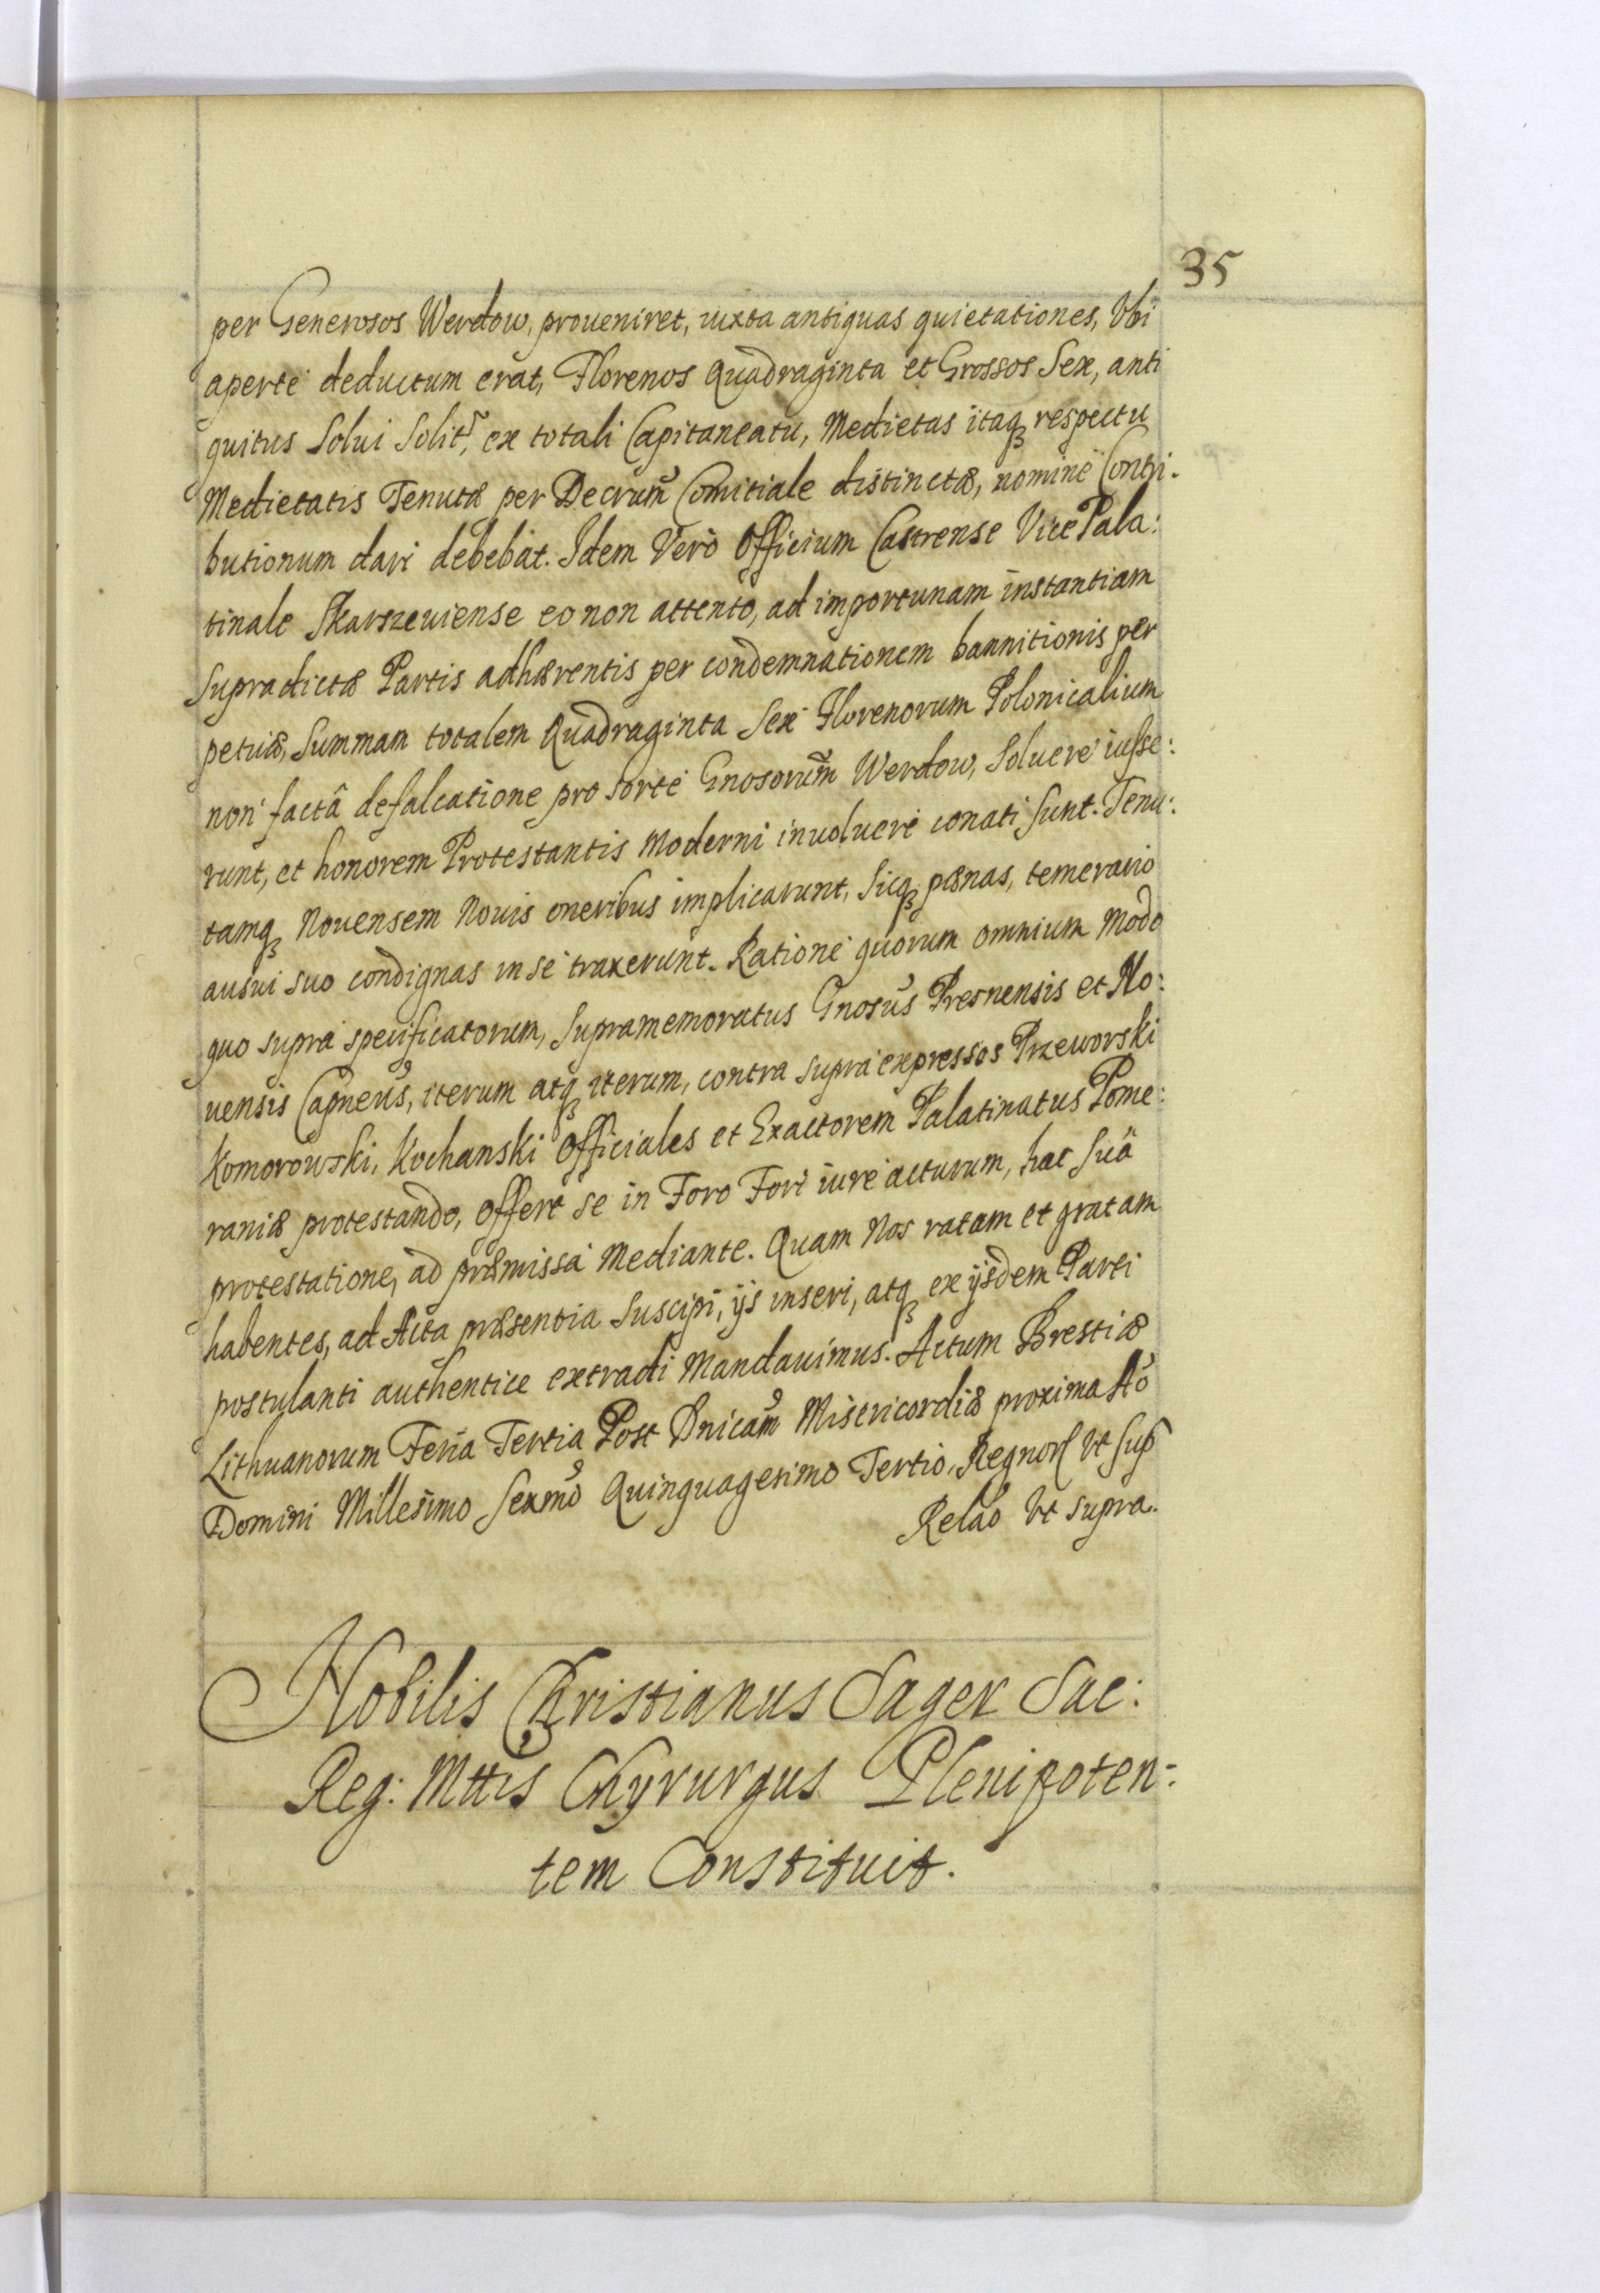 35
per Generosos Werdow, proueniret, iuxta antiquas quietationes, Vbi
aperte deductum erat, Florenos Quadraginta et Grossos Sex, anti
quitus Solui Solitr, ex totali Capitaneatu, Medietas itaqꝫ respectu
Medietatis Tenutæ per Decrum̃ Comitiale distinctæ, nomine Contri-
butionum dari debebat. Idem Vero Officium Castrense Vice Pala:
tinale Skarszeuiense eo non attento, ad importunam instantiam
Supradictæ Partis adhærentis per condemnationem bannitionis per
petuæ, Summam totalem Quadraginta Sex Florenorum Polonicalium
non factâ defalcatione pro sorte Gnosorum̃ Werdow, Soluere iusse:
runt, et honorem Protestantis Moderni inuoluere conati Sunt. Tenu:
tamqꝫ Nouensem Nouis oneribus implicarunt, Sicqꝫ pœnas, temerario
ausui suo condignas in se traxerunt. Ratione quorum omnium Modo
quo supra specificatorum, Supramemoratus Gnosus̃ Presnensis et No:
uensis Capneus̃, iterum atqꝫ iterum, contra supra expressos Przeworski
Komorowski, Kochanski Officiales et Exactorem Palatinatus Pome:
raniæ protestando, offert se in Foro Fori iure acturum, hac Suâ
protestatione, ad præmissa Mediante. Quam Nos ratam et gratam
habentes, ad Acta præsentia Suscipi, ijs inseri, atqꝫ ex ijsdem Parti
postulanti authentice extradi Mandauimus. Actum Brestiæ
Lithuanorum Feria Tertia Post Dnicam̃ Misericordiæ proxima Aõ
Domini Millesimo Sexmõ Quinquagesimo Tertio, Regnorꝭ Vt Sup
Relaõ Vt supra.
Nobilis Christianus Sager Sac:
Reg: Mttis Chyrurgus Plenipoten-:
tem Constituit.